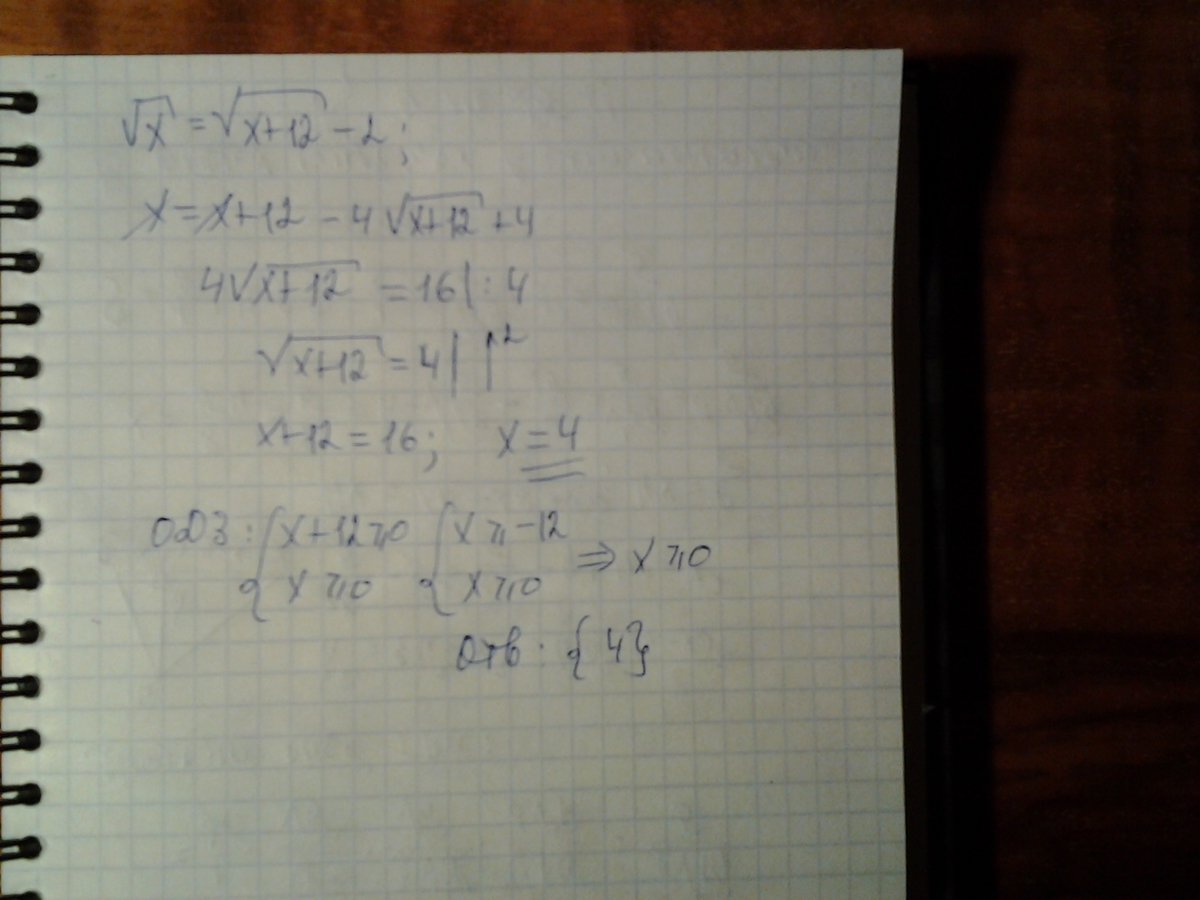 √x = √x+12 - 2;
x = x+12 - 4√x+12 + 4
4√x+12 = 16 | : 4
√x+12 = 4 | |²
x+12 = 16; x = 4
ОДЗ: { x+12 ≥ 0 { x ≥ -12 ⇒ x ≥ 0
x ≥ 0 x ≥ 0
Отв: {4}